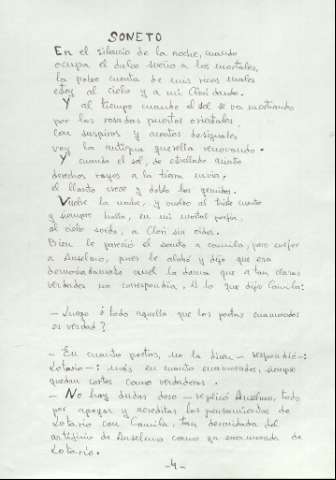 SONETO
En el silencio de la noche, cuando
ocupa el dulce sueño a los mortales,
la pobre cuenta de mis ricos males
estoy al cielo y a mi Clori dando.
Y al tiempo cuando el sol se va mostrando
por las rosadas puertas orientales,
con suspiros y acentos desiguales
voy la antigua querella renovando.
Y cuando el sol, de estrellado asiento
derechos rayos a la tierra envía,
el llanto crece y doblo los gemidos.
Vuelve la noche, y vuelvo al triste cuento
y siempre hallo, en mi mortal porfía,
al cielo sordo, a Clori sin oídos.
Bien le pareció el soneto a Camila, pero mejor
a Anselmo, pues le alabó y dijo que era
demasiadamente cruel la dama que a tan claras
verdades no correspondía. A lo que dijo Camila:
- Luego ¿ todo aquello que los poetas enamorados
es verdad ?
- En cuanto poetas, no la dicen - respondió -:
Lotario -: mas en cuanto enamorados, siempre
quedan cortos como verdaderos.
- No hay dudar deso - replicó Anselmo, todo
por apoyar y acreditar los pensamientos de
Lotario con Camila, tan descuidada del
artificio de Anselmo como ya enamorada de
Lotario.
- 4 -